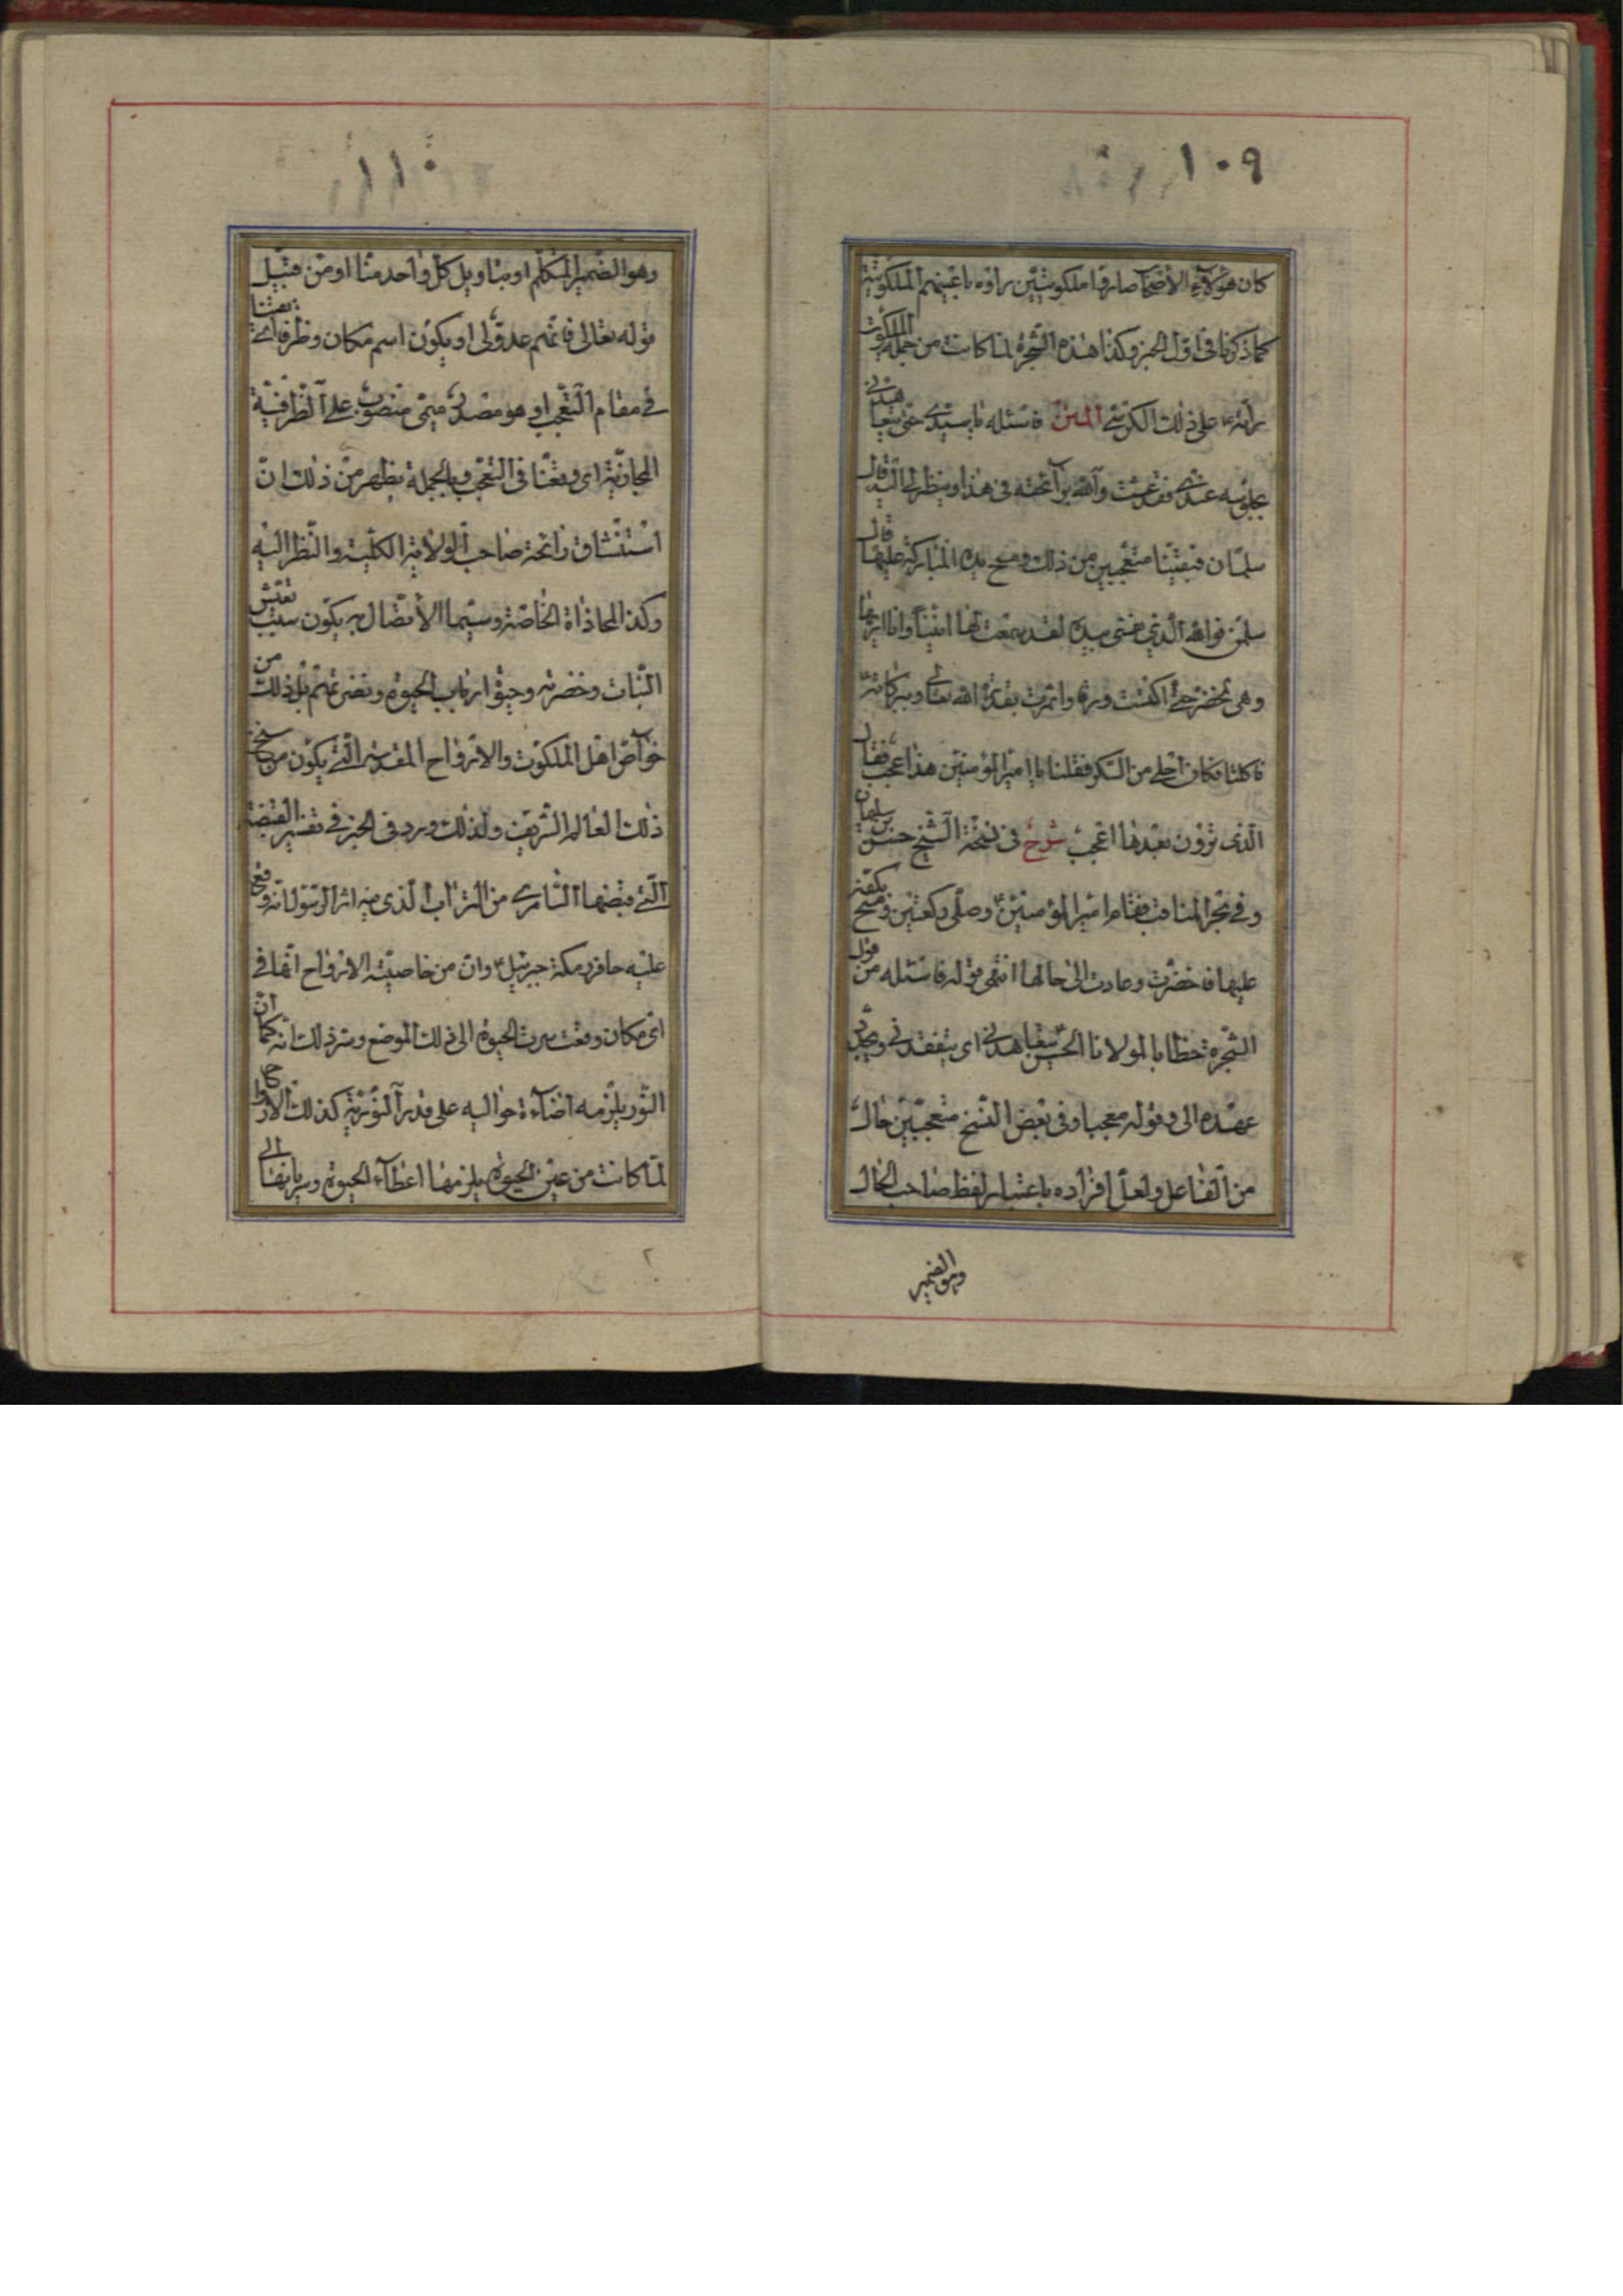 ١٠٩
كان هؤلاء الأصحاب صاروا ملكوتيين رأوه بأعينهم الملكوتية
كما ذكرنا في أول الخبر وكذا هذه الشجرة لما كانت من جملة الملكوت
رأته على ذلك الكرسي المتن فاسئله يا سيدي حتى يتعاهدني
بجلوسه عندي فقد عشت والله برائحته في هذا وينظر اليه قال
سلمان فبقينا متعجبين من ذلك ومسح يده المباركة عليها قال
سلمن فوالله الذي نفسي بيده لقد سمعت لها انينا وانا اريها
وهي تخضر حتى اكتست ورقا واثمرت بقدرة الله تعالى وبركاته
فاكلنا فكان احلى من السكر فقلنا يا امير المؤمنين هذا عجب فقال
الذي ترون بعدها اعجب شرح في نسخة الشيخ حسن بن سليمان
وفي بحر المناقب فقام امير المؤمنين وصلى ركعتين ومسح بكفه
عليها فاخضرت وعادت الى حالها انتهى قوله فاسئله من قول
الشجرة خطابا لمولانا الحسن يتعاهدني اي يتفقدني ويجدد
عهده الى وقوله معجبا وفي بعض النسخ متعجبين حال
من الفاعل ولعل افراده باعتبار لفظ صاحب الحال
وهو الضمير
١١٠
وهو الضمير المتكلم او بتاويل كل واحد منا او من قبيل
قوله تعالى فانهم عدو لي او يكون اسم مكان وظرفا اي بقينا
في مقام التعجب او هو مصدر ميمي منصوب على الظرفية
المجازية اي وقعنا في التعجب وبالجملة يظهر من ذلك ان
استنشاق رائحة صاحب الولاية الكلية والنظر اليه
وكذا المحاذاة الخاصة وسيما الاتصال به يكون سبب تعيش
النبات وخضرته وحيوة ارباب الحيوة ونضرتهم بل ذلك من
خواص اهل الملكوت والارواح المقدسة التي يكون من سنخ
ذلك العالم الشريف ولذلك ورد في الخبر في تفسير القبضة
التي قبضها السامري من التراب الذي فيه اثر الرسول انه وقع
عليه حافر رمكة جبرئيل وان من خاصية الارواح انها في
اي مكان وقعت سرت الحيوة الى ذلك الموضع وسر ذلك انه كما ان
النور يلزمه اضاءة حواليه على قدر النورية كذلك الارواح
لما كانت من عين الحيوة يلزمها اعطاء الحيوة وسريانها الى